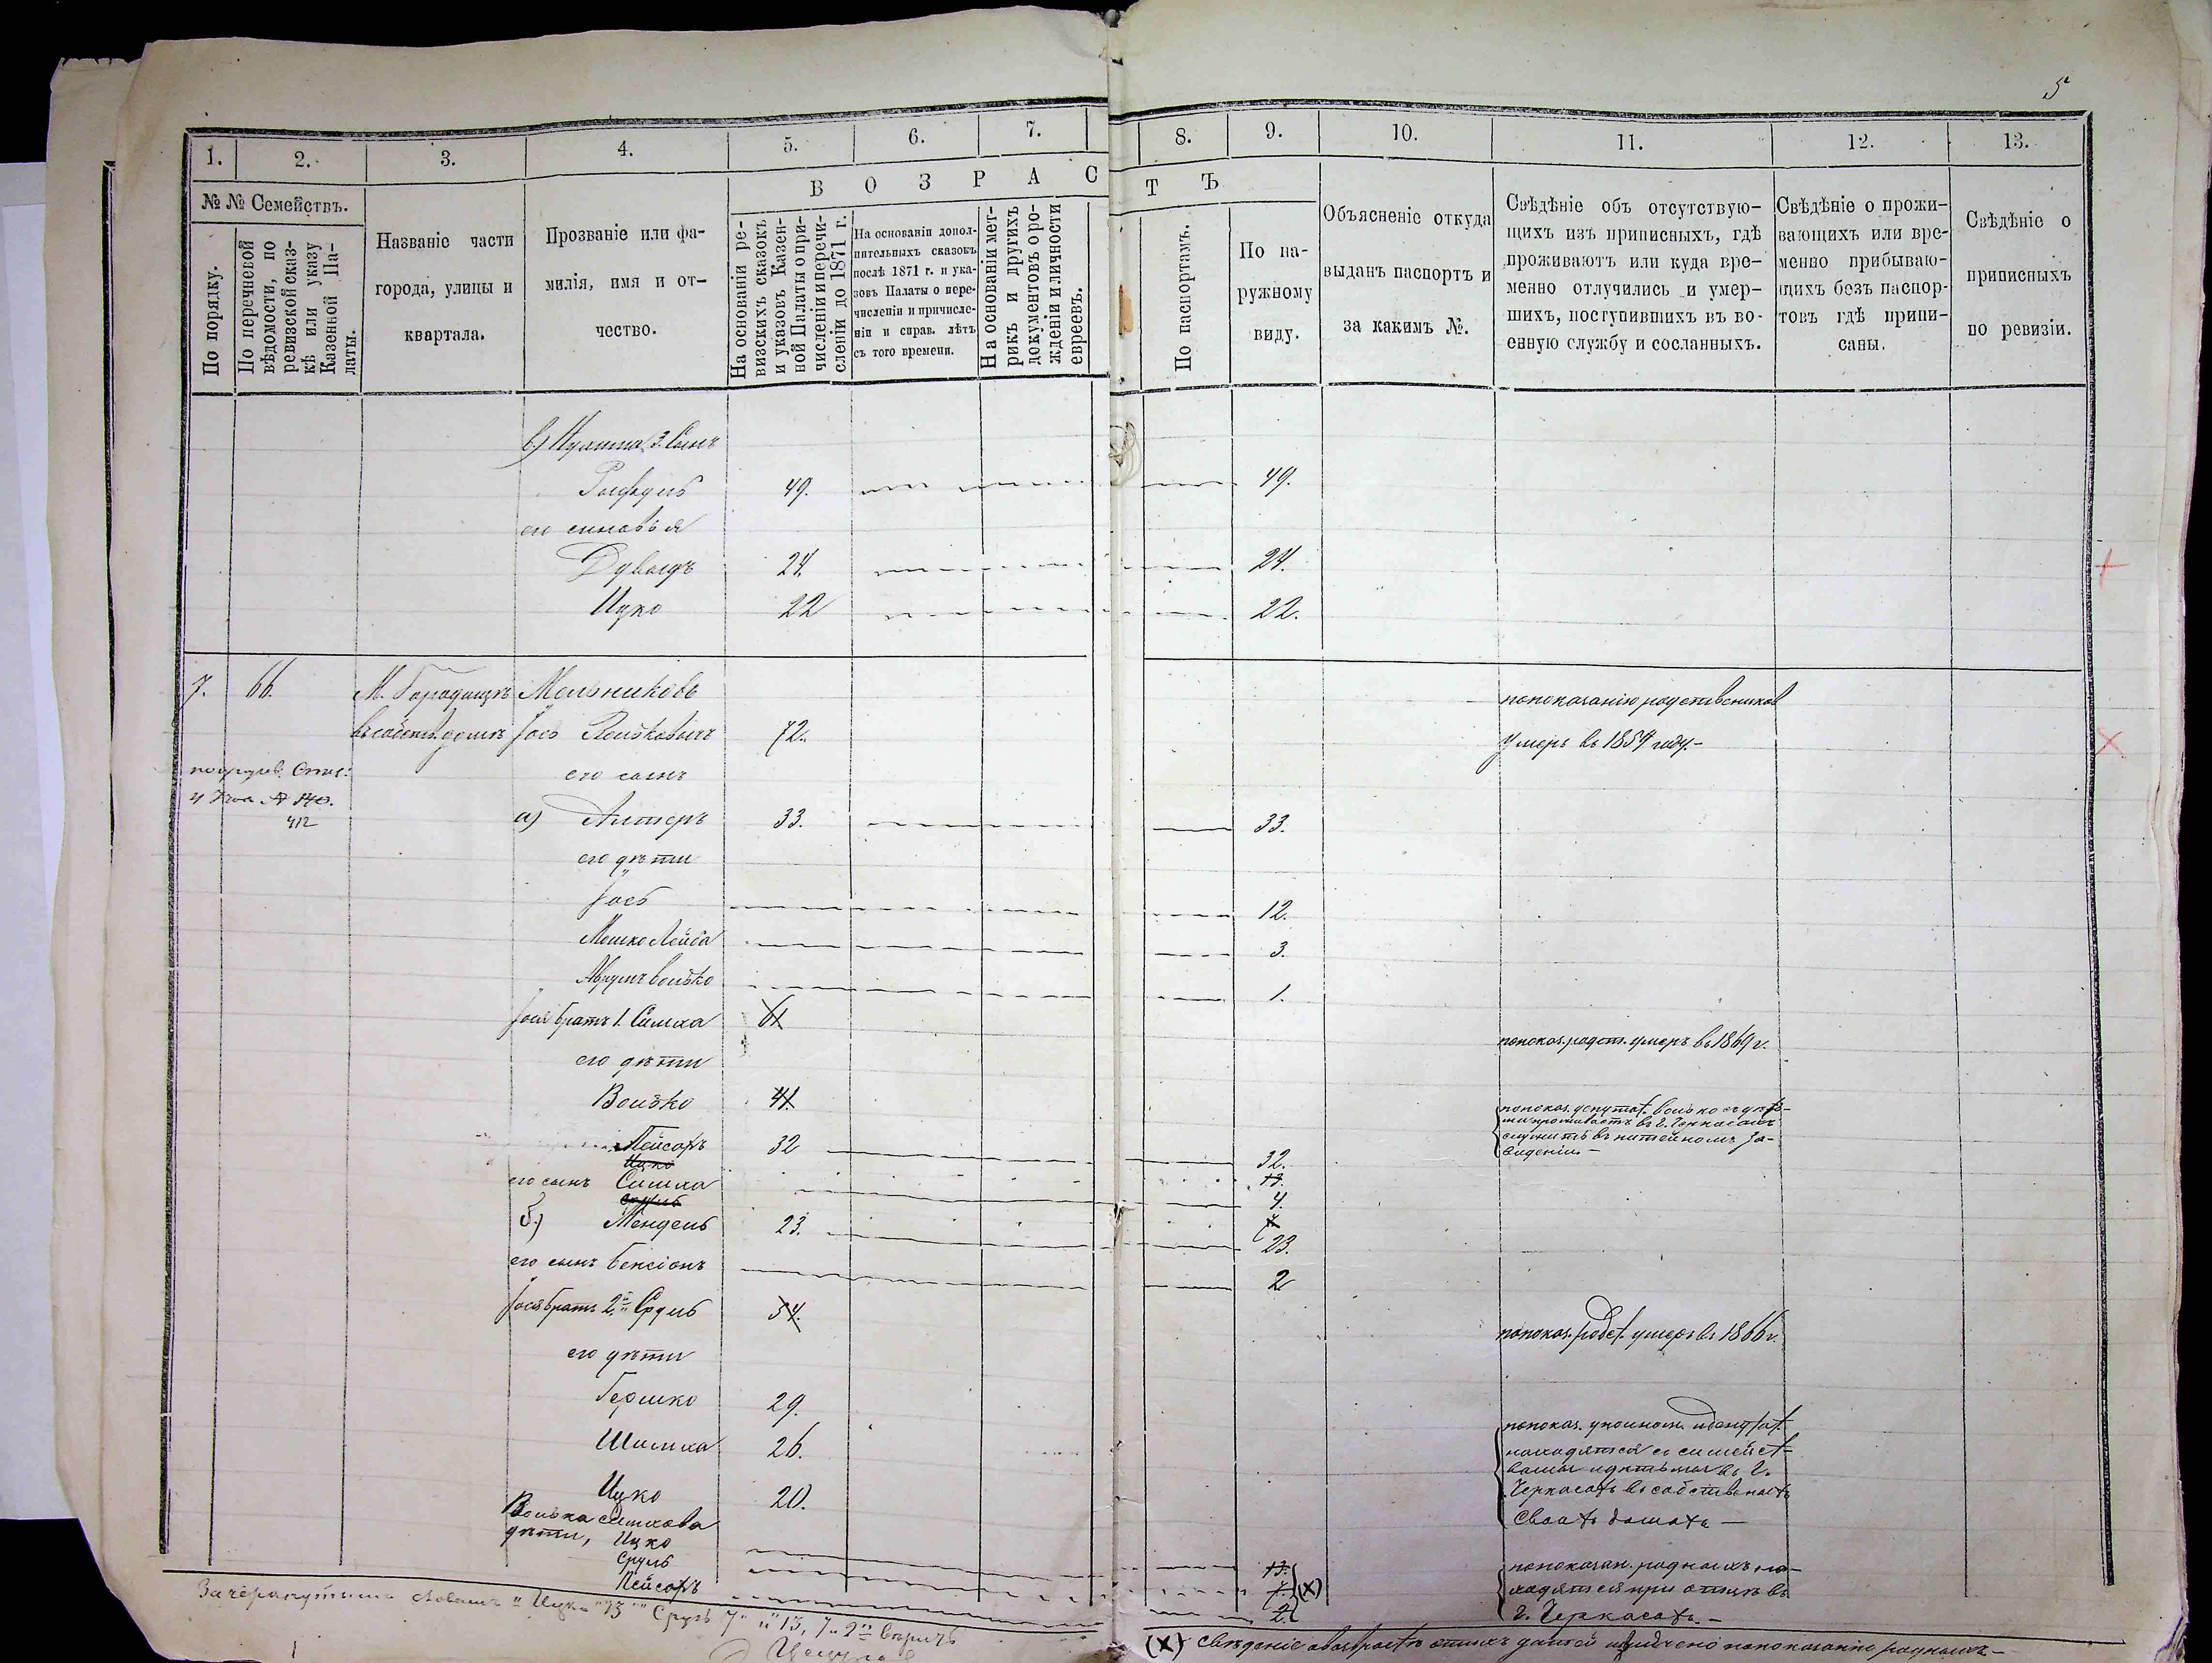 5
1. 2. 3. 4. 5. 6. 7. 8. 9. 10. 11. 12. 13.
№ № Семействъ.
По порядку.
По перечневой
вѣдомости, по
ревизской сказ-
кѣ или указу
Казенной Па-
латы.
Названіе части
города, улицы и
квартала.
Прозваніе или фа-
милія, имя и от-
чество.
В О З Р А С Т Ъ
На основаніи ре-
визскихъ сказокъ
и указовъ Казен-
ной Палаты о при-
численіи и перечи-
сленіи до 1871 г.
На основаніи допол-
нительныхъ сказокъ
послѣ 1871 г. и ука-
зовъ Палаты о пере-
численіи и причисле-
ніи и справ. лѣтъ
съ того времени.
На основаніи мет-
рикъ и другихъ
документовъ о ро-
жденіи и личности
евреевъ.
По паспортамъ.
По на-
ружному
виду.
Объясненіе откуда
выданъ паспортъ и
за какимъ №.
Свѣдѣніе объ отсутствую-
щихъ изъ приписныхъ, гдѣ
проживаютъ или куда вре-
менно отлучились и умер-
шихъ, поступившихъ въ во-
енную службу и сосланныхъ.
Свѣдѣніе о прожи-
вающихъ или вре-
менно прибываю-
щихъ безъ паспор-
товъ гдѣ припи-
саны.
Свѣдѣніе о
приписныхъ
по ревизіи.
в) 3. Сынъ
49. 49.
его сыновья
Дувыдъ 24. 24.
Ицко 22 22.
7. 66. М. Городищъ Мельниковъ по показанію родственниковъ
въ собств. домѣ Іось 72. умеръ въ 1859 году.-
его сынъ
412
а) Алтеръ 33. 33.
его дѣти
Іось 12.
Мошко Лейба 3.
Аврумъ Волько 1.
Іося братъ 1. Симха 61 по показ. родст. умеръ въ 1869 г.
его дѣти
Волько 41.
по показ. депутат. Волько съ дѣть-
ми проживаетъ въ г. Черкасахъ
служитъ въ питейномъ за-
веденіи.-
Пейсахъ 32 32.
Ицко 13.
его сынъ Симха 4.
Сруль
б) Мендель 23. 23.
его сынъ Бенсіонъ 2
Іося братъ 2й Сруль 54. по показ. родст. умеръ въ 1866 г.
его дѣти
Гершко 29.
Шимха 26.
Ицко 20.
по показ.
находятся съ семейст-
вами и дѣтьми въ г.
Черкасахъ въ собственныхъ
своихъ домахъ —
Волька Симхова
дѣти, Ицко 13.
Сруль 7. (х)
Пейсахъ 2.
по показан. родныхъ на-
ходятся при отцѣ въ
г. Черкасахъ.-
Зачеркнутымъ словамъ "Ицко" "13" "Сруль 7" "13, 7 2" вѣрить
(х) Свѣденіе о возрастѣ этихъ дѣтей по показанію родныхъ-